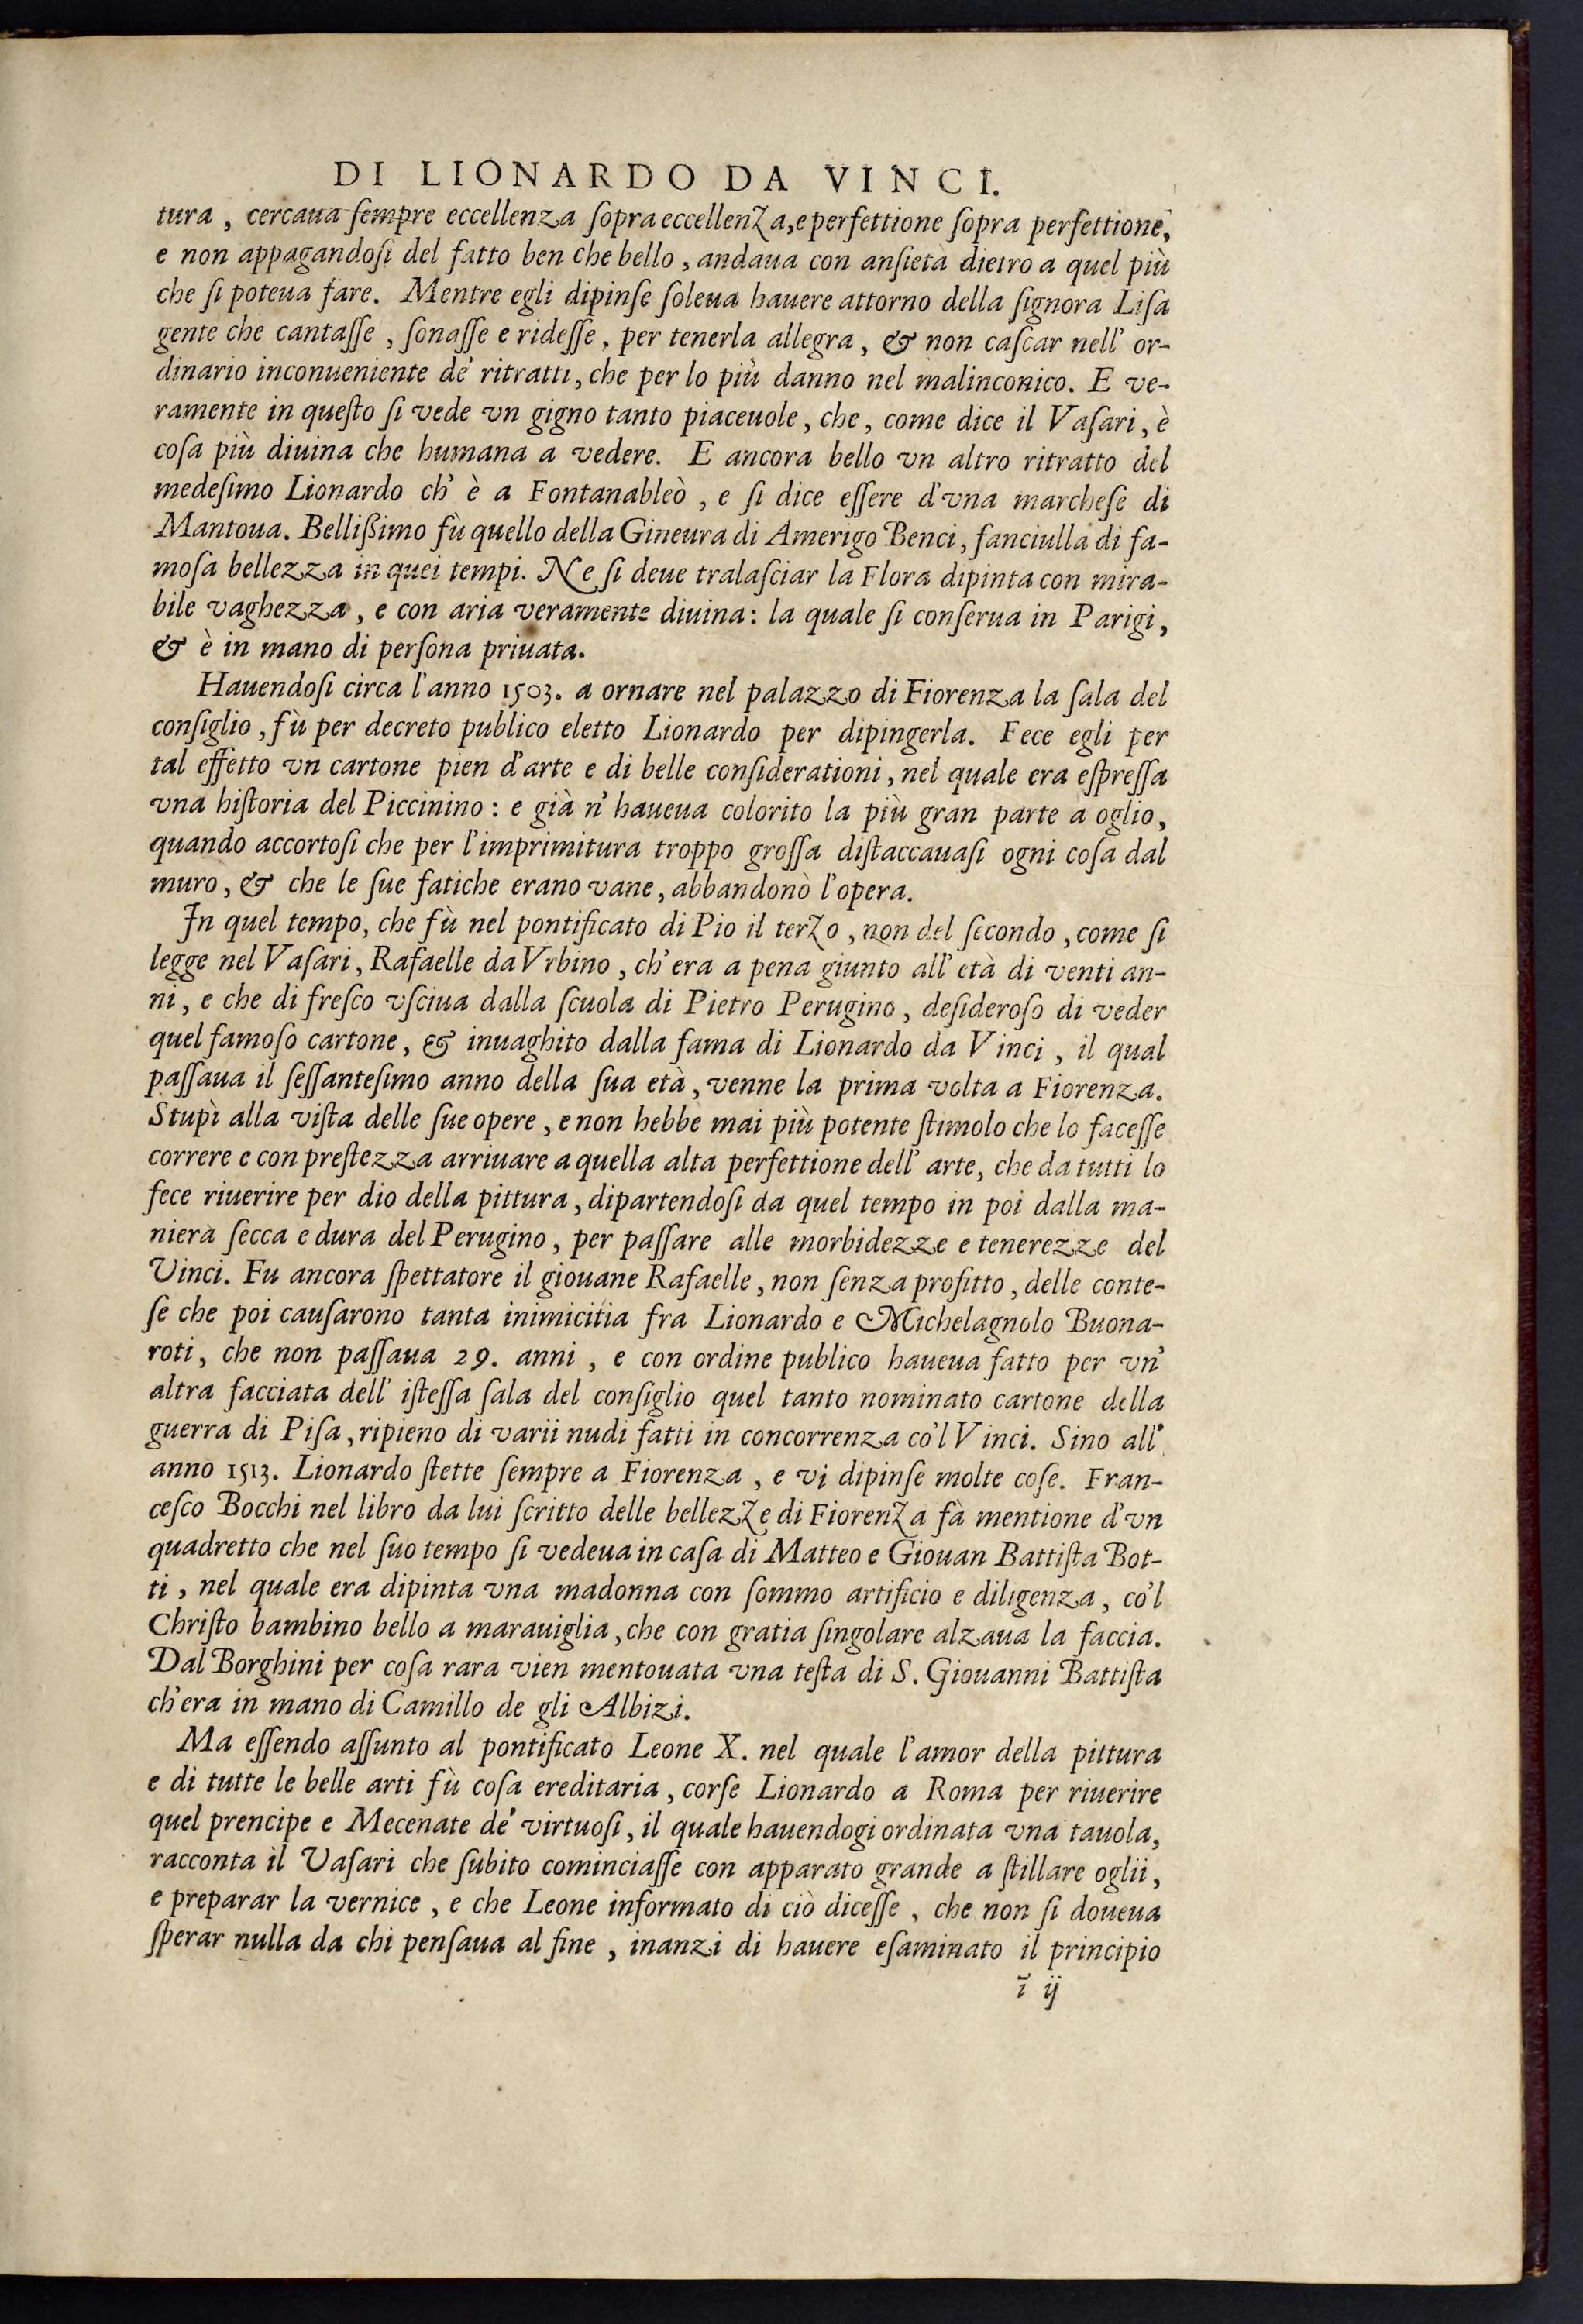 DI LIONARDO DA VINCI.
tura, cercaua ſempre eccellenza ſopra eccellenza, e perfettione ſopra perfettione,
e non appagandoſi del fatto ben che bello, andaua con anſietà dietro a quel più
che ſi poteua fare. Mentre egli dipinſe ſoleua hauere attorno della ſignora Liſa
gente che cantaſſe, ſonaſſe e rideſſe, per tenerla allegra, & non caſcar nell' or-
dinario inconueniente de' ritratti, che per lo più danno nel malinconico. E ve-
ramente in queſto ſi vede vn gigno tanto piaceuole, che, come dice il Vaſari, è
coſa più diuina che humana a vedere. E ancora bello vn altro ritratto del
medeſimo Lionardo ch' è a Fontanableò, e ſi dice eſſere d'vna marcheſe di
Mantoua. Belliſsimo fù quello della Gineura di Amerigo Benci, fanciulla di fa-
moſa bellezza in quei tempi. Ne ſi deue tralaſciar la Flora dipinta con mira-
bile vaghezza, e con aria veramente diuina: la quale ſi conſerua in Parigi,
& è in mano di perſona priuata.
Hauendoſi circa l'anno 1503. a ornare nel palazzo di Fiorenza la ſala del
conſiglio, fù per decreto publico eletto Lionardo per dipingerla. Fece egli per
tal effetto vn cartone pien d'arte e di belle conſiderationi, nel quale era eſpreſſa
vna hiſtoria del Piccinino: e già n' haueua colorito la più gran parte a oglio,
quando accortoſi che per l'imprimitura troppo groſſa diſtaccauaſi ogni coſa dal
muro, & che le ſue fatiche erano vane, abbandonò l'opera.
In quel tempo, che fù nel pontificato di Pio il terzo, non del ſecondo, come ſi
legge nel Vaſari, Rafaelle da Vrbino, ch' era a pena giunto all' età di venti an-
ni, e che di freſco vſciua dalla ſcuola di Pietro Perugino, deſideroſo di veder
quel famoſo cartone, & inuaghito dalla fama di Lionardo da Vinci, il qual
paſſaua il ſeſſanteſimo anno della ſua età, venne la prima volta a Fiorenza.
Stupì alla viſta delle ſue opere, e non hebbe mai più potente ſtimolo che lo faceſſe
correre e con preſtezza arriuare a quella alta perfettione dell' arte, che da tutti lo
fece riuerire per dio della pittura, dipartendoſi da quel tempo in poi dalla ma-
niera ſecca e dura del Perugino, per paſſare alle morbidezze e tenerezze del
Vinci. Fu ancora ſpettatore il giouane Rafaelle, non ſenza profitto, delle conte-
ſe che poi cauſarono tanta inimicitia fra Lionardo e Michelagnolo Buona-
roti, che non paſſaua 29. anni, e con ordine publico haueua fatto per vn'
altra facciata dell' iſteſſa ſala del conſiglio quel tanto nominato cartone della
guerra di Piſa, ripieno di varii nudi fatti in concorrenza co'l Vinci. Sino all'
anno 1513. Lionardo ſtette ſempre a Fiorenza, e vi dipinſe molte coſe. Fran-
ceſco Bocchi nel libro da lui ſcritto delle bellezze di Fiorenza fà mentione d'vn
quadretto che nel ſuo tempo ſi vedeua in caſa di Matteo e Giouan Battiſta Bot-
ti, nel quale era dipinta vna madonna con ſommo artificio e diligenza, co'l
Chriſto bambino bello a marauiglia, che con gratia ſingolare alzaua la faccia.
Dal Borghini per coſa rara vien mentouata vna teſta di S. Giouanni Battiſta
ch'era in mano di Camillo de gli Albizi.
Ma eſſendo aſſunto al pontificato Leone X. nel quale l'amor della pittura
e di tutte le belle arti fù coſa ereditaria, corſe Lionardo a Roma per riuerire
quel prencipe e Mecenate de' virtuoſi, il quale hauendogi ordinata vna tauola,
racconta il Vaſari che ſubito cominciaſſe con apparato grande a ſtillare oglii,
e preparar la vernice, e che Leone informato di ciò diceſſe, che non ſi doueua
ſperar nulla da chi penſaua al fine, inanzi di hauere eſaminato il principio
ĩ ij